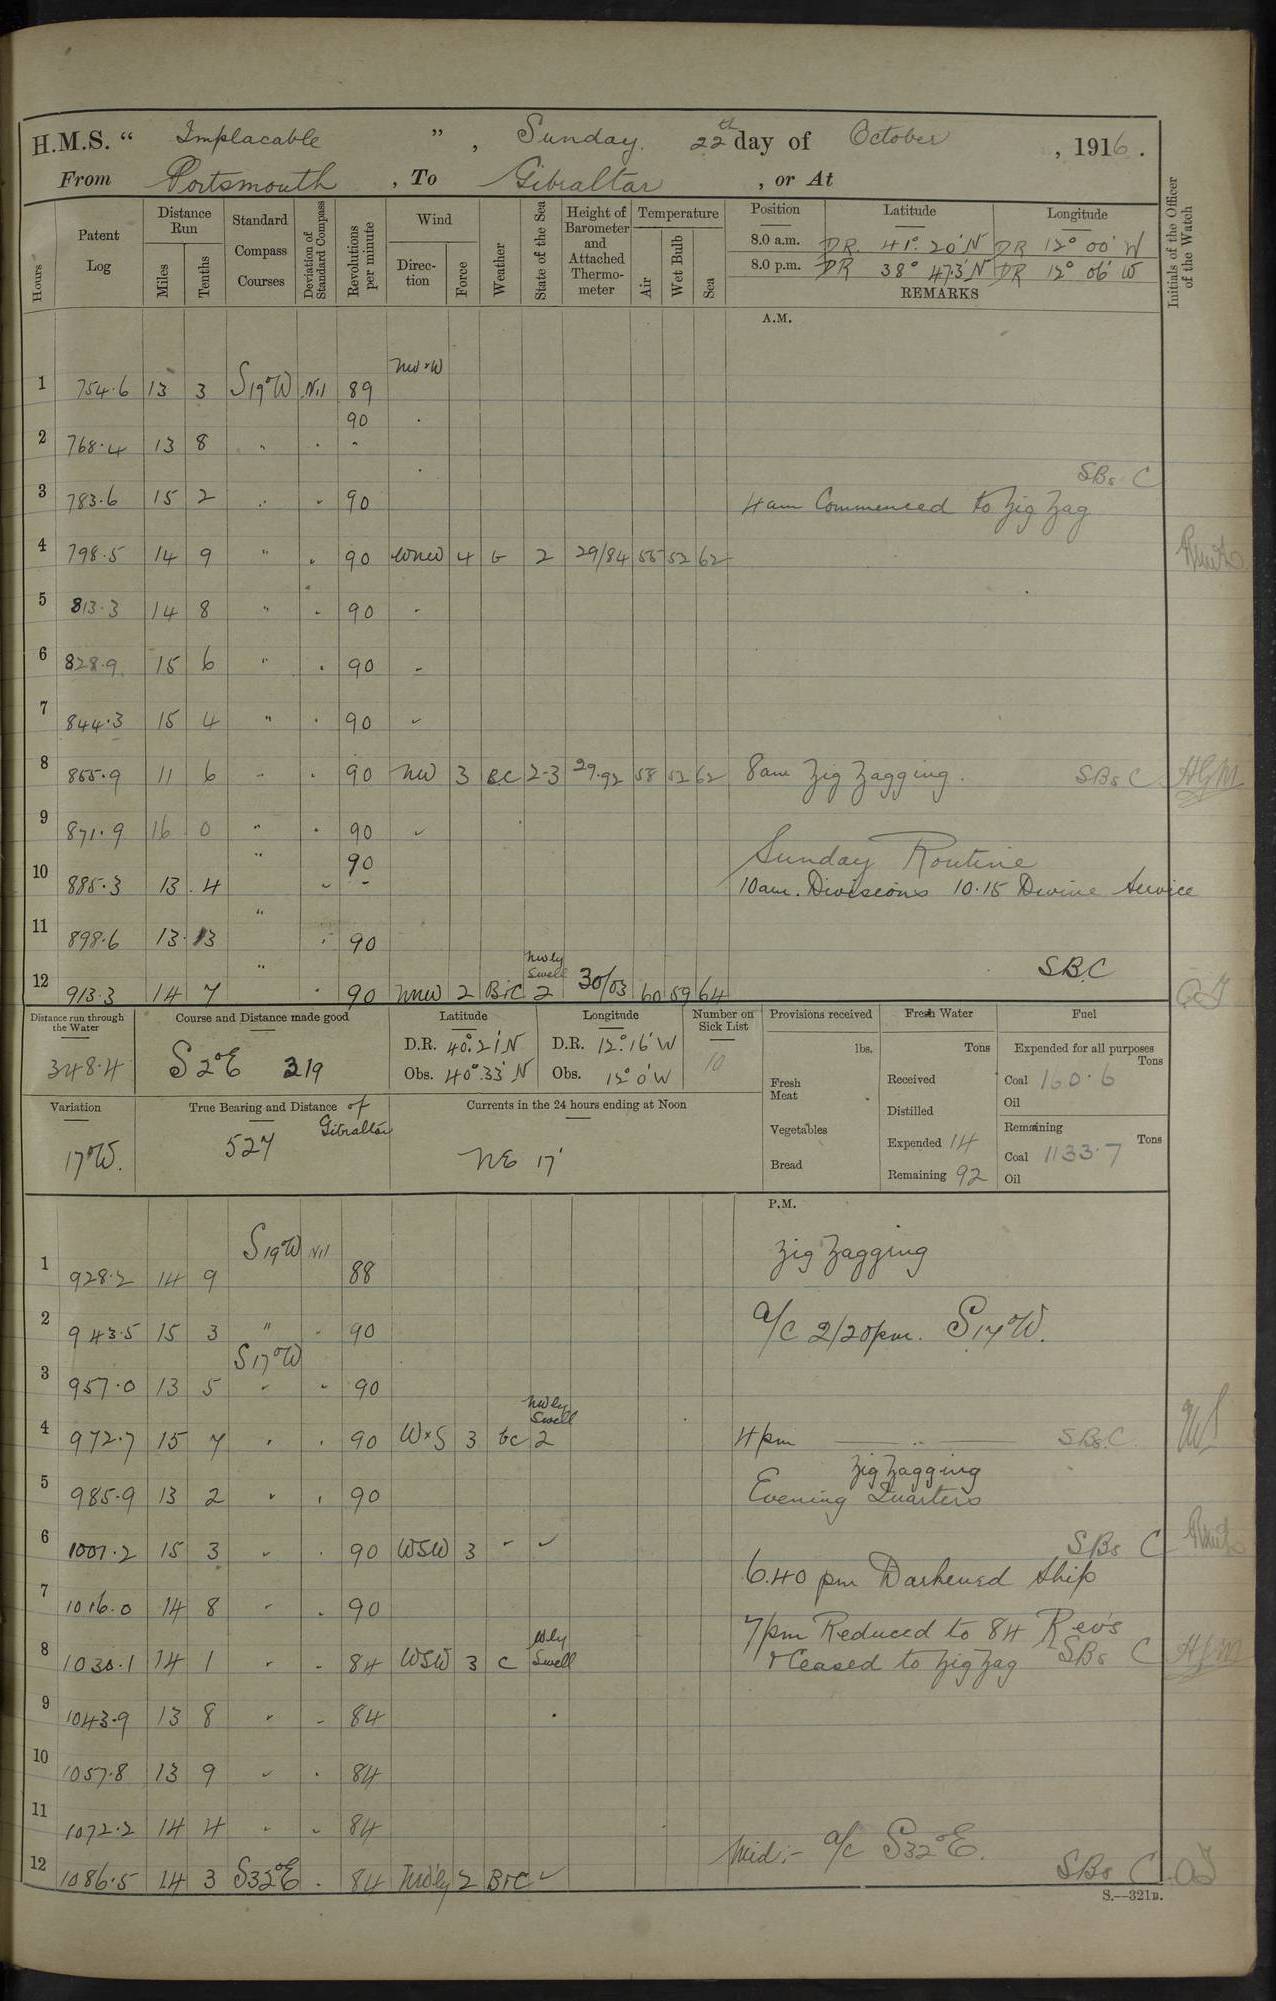 H.M.S. “ Implacable ”, Sunday. 22th day of October, 1916.
From Portsmouth, To Gibraltar, or At
Initials of the Officer of the Watch
Hours
Patent Log
Distance Run
Miles
Tenths
Standard Compass Courses
Deviation of Standard Compass
Revolutions per minute
Wind
Direction
Force
Weather
State of the Sea
Height of Barometer and Attached Thermometer
Temperature
Air
Wet Bulb
Sea
Position Latitude Longitude
8.0 a.m. DR. 41° 20' N DR 12° 00' W
8.0 p.m. DR 38° 47.3' N DR 12° 06' W
REMARKS
A.M.
NW×W
1 754.6 13 3 S19°W Nil 89
90
2 768.4 13 8 " . "
SBs C
3 783.6 15 2 " . 90 4am Commenced to Zig Zag
4 798.5 14 9 " . 90 WNW 4 2 29/84 55 52 62
5 813.3 14 8 " . 90
6 828.9 15 6 " . 90
7 844.3 15 4 " . 90
8 855.9 11 6 " . 90 NW 3 BC 2-3 29.92 58 52 62 8am Zig Zagging. SBs C HGM
9 871.9 16 0 " . 90
" 90 Sunday Routine
10 885.3 13 .4 " 10am. Divisions 10.15 Divine Service
11 898.6 13. 3 " . 90
NWly Swell SBC
12 913.3 14 7 " . 90 NNW 2 B+C 2 30/03 60 59 64
Distance run through the Water
348.4
Course and Distance made good
S 2°E 219
Latitude
D.R. 40°. 21' N
Obs. 40°. 33' N
Longitude
D.R. 12°. 16' W
Obs. 12° 0' W
Number on Sick List
10
Provisions received
lbs.
Fresh Meat
Vegetables
Bread
Fresh Water
Tons
Received
Distilled
Expended 14
Remaining 92
Fuel
Expended for all purposes
Tons
Coal 160.6
Oil
Remaining
Tons
Coal 1133.7
Oil
Variation
17°W.
True Bearing and Distance of Gibraltar
527
Currents in the 24 hours ending at Noon
NE 17'
P.M.
1 928.2 14 9 S19°W Nil 88 Zig Zagging
2 943.5 15 3 " . 90 a/c 2/20pm. S17°W.
S17°W
3 957.0 13 5 " " 90
NWly Swell
4 972.7 15 7 " . 90 W×S 3 bc 2 4pm —— " —— SBs.C.
Zig Zagging
5 985.9 13 2 " . 90 Evening Quarters
6 1001.2 15 3 " . 90 WSW 3 " " SBs C
6.40 pm Darkened Ship
7 1016.0 14 8 " . 90
7pm Reduced to 84 Rev's
8 1030.1 14 1 " . 84 WSW 3 C Wly Swell + Ceased to Zig Zag SBs C HGM
9 1043.9 13 8 " . 84
10 1057.8 13 9 " . 84
11 1072.2 14 4 " " 84
Mid:- a/c S32°E.
12 1086.5 14 3 S32°E . 84 2 B+C " SBs C
S.—321B.